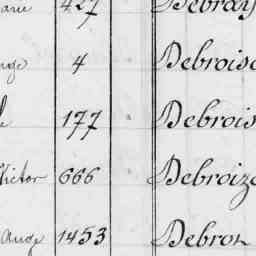 427 Debrais
4 Debrois
177 Debrois
Victor 666 Debroize
Ange 1453 Debron